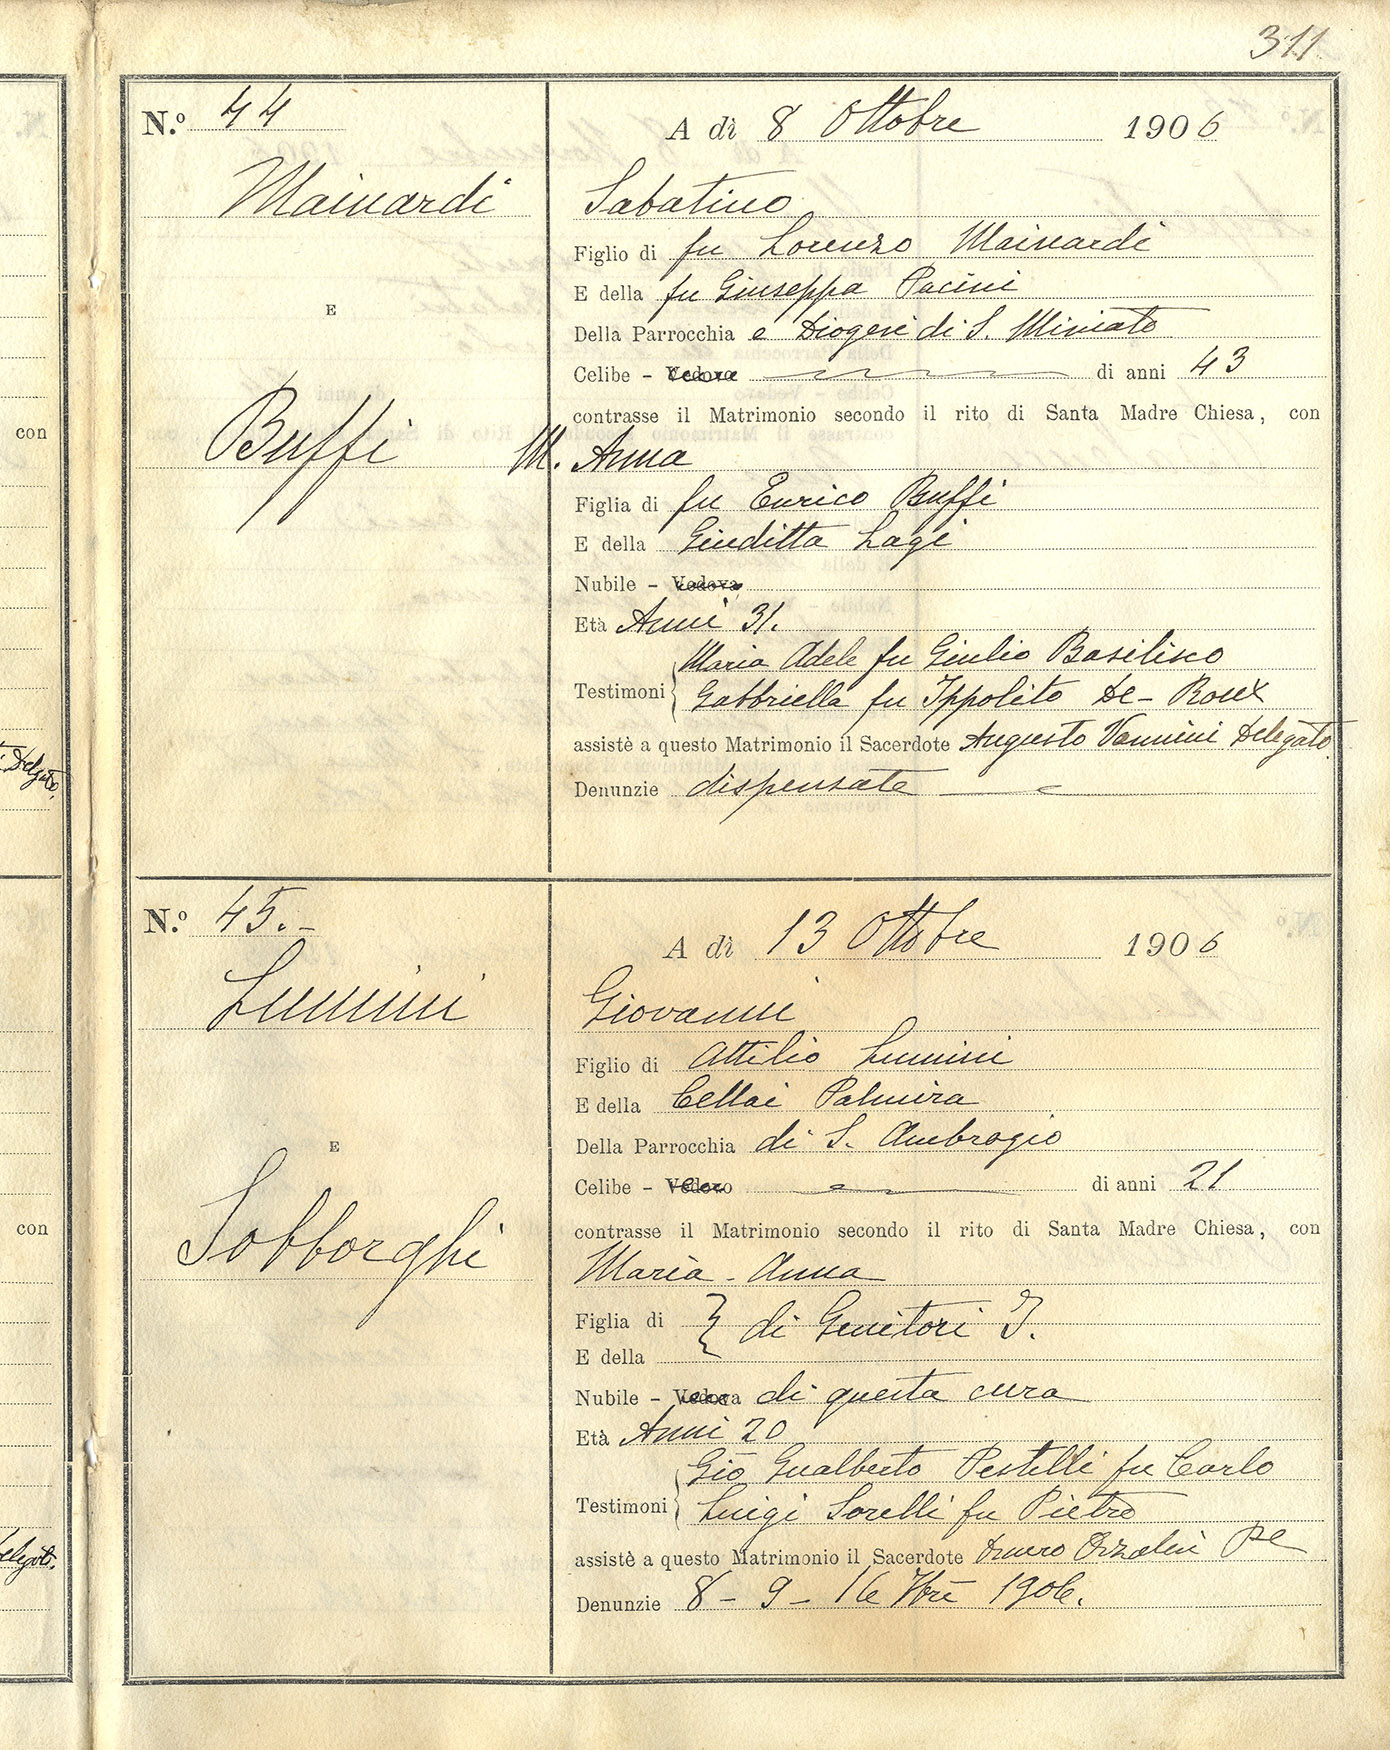 311
con
Delgato.
con
N.º 44
A dì 8 Ottobre 1906
Mainardi
Sabatino
Figlio di fu Lorenzo Mainardi
E della fu Giuseppa Pacini
E
Della Parrocchia e Diogesi di S. Miniato
Celibe – Vedovo di anni 43
contrasse il Matrimonio secondo il rito di Santa Madre Chiesa, con
Buffi
M. Anna
Figlia di fu Enrico Buffi
E della Giuditta Lagi
Nubile – Vedova
Età Anni 31.
Maria Adele fu Giulio Basilisco
Testimoni
Gabbriella fu Ippolito De- Roux
assistè a questo Matrimonio il Sacerdote Augusto Vannini Delegato.
Denunzie dispensate
N.º 45.-
A dì 13 Ottobre 1906
Lumini
Giovanni
Figlio di Attilio Lumini
E della Cellai Palmira
E
Della Parrocchia di S. Ambrogio
Celibe – Vedovo di anni 21
contrasse il Matrimonio secondo il rito di Santa Madre Chiesa, con
Sobborghi
Maria - Anna
Figlia di
di Genitori I.
E della
Nubile – Vedova di questa cura
Età Anni 20
Gio Gualberto Pestelli fu Carlo
Testimoni
Luigi Sorelli fu Pietro
assistè a questo Matrimonio il Sacerdote
Denunzie 8 - 9 - 16 7bre 1906.